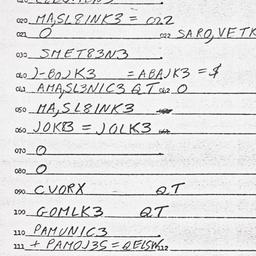 020 MA,SL8INK3 = 022
021 O 022 SAPO,VETK
030 SMET83N3
040 J-BOJK3 = ABAJK3 = $
041 AMA,SL3NIC3 Q.T 042 O
050 MA,SL8INK3
060 JOKB3 = JOLK3
070 O
080 O
090 CVORX Q.T
100 GOMLK3 Q.T
110 PAMUNIC3
111 + PAMOJ3S = QELSW 112